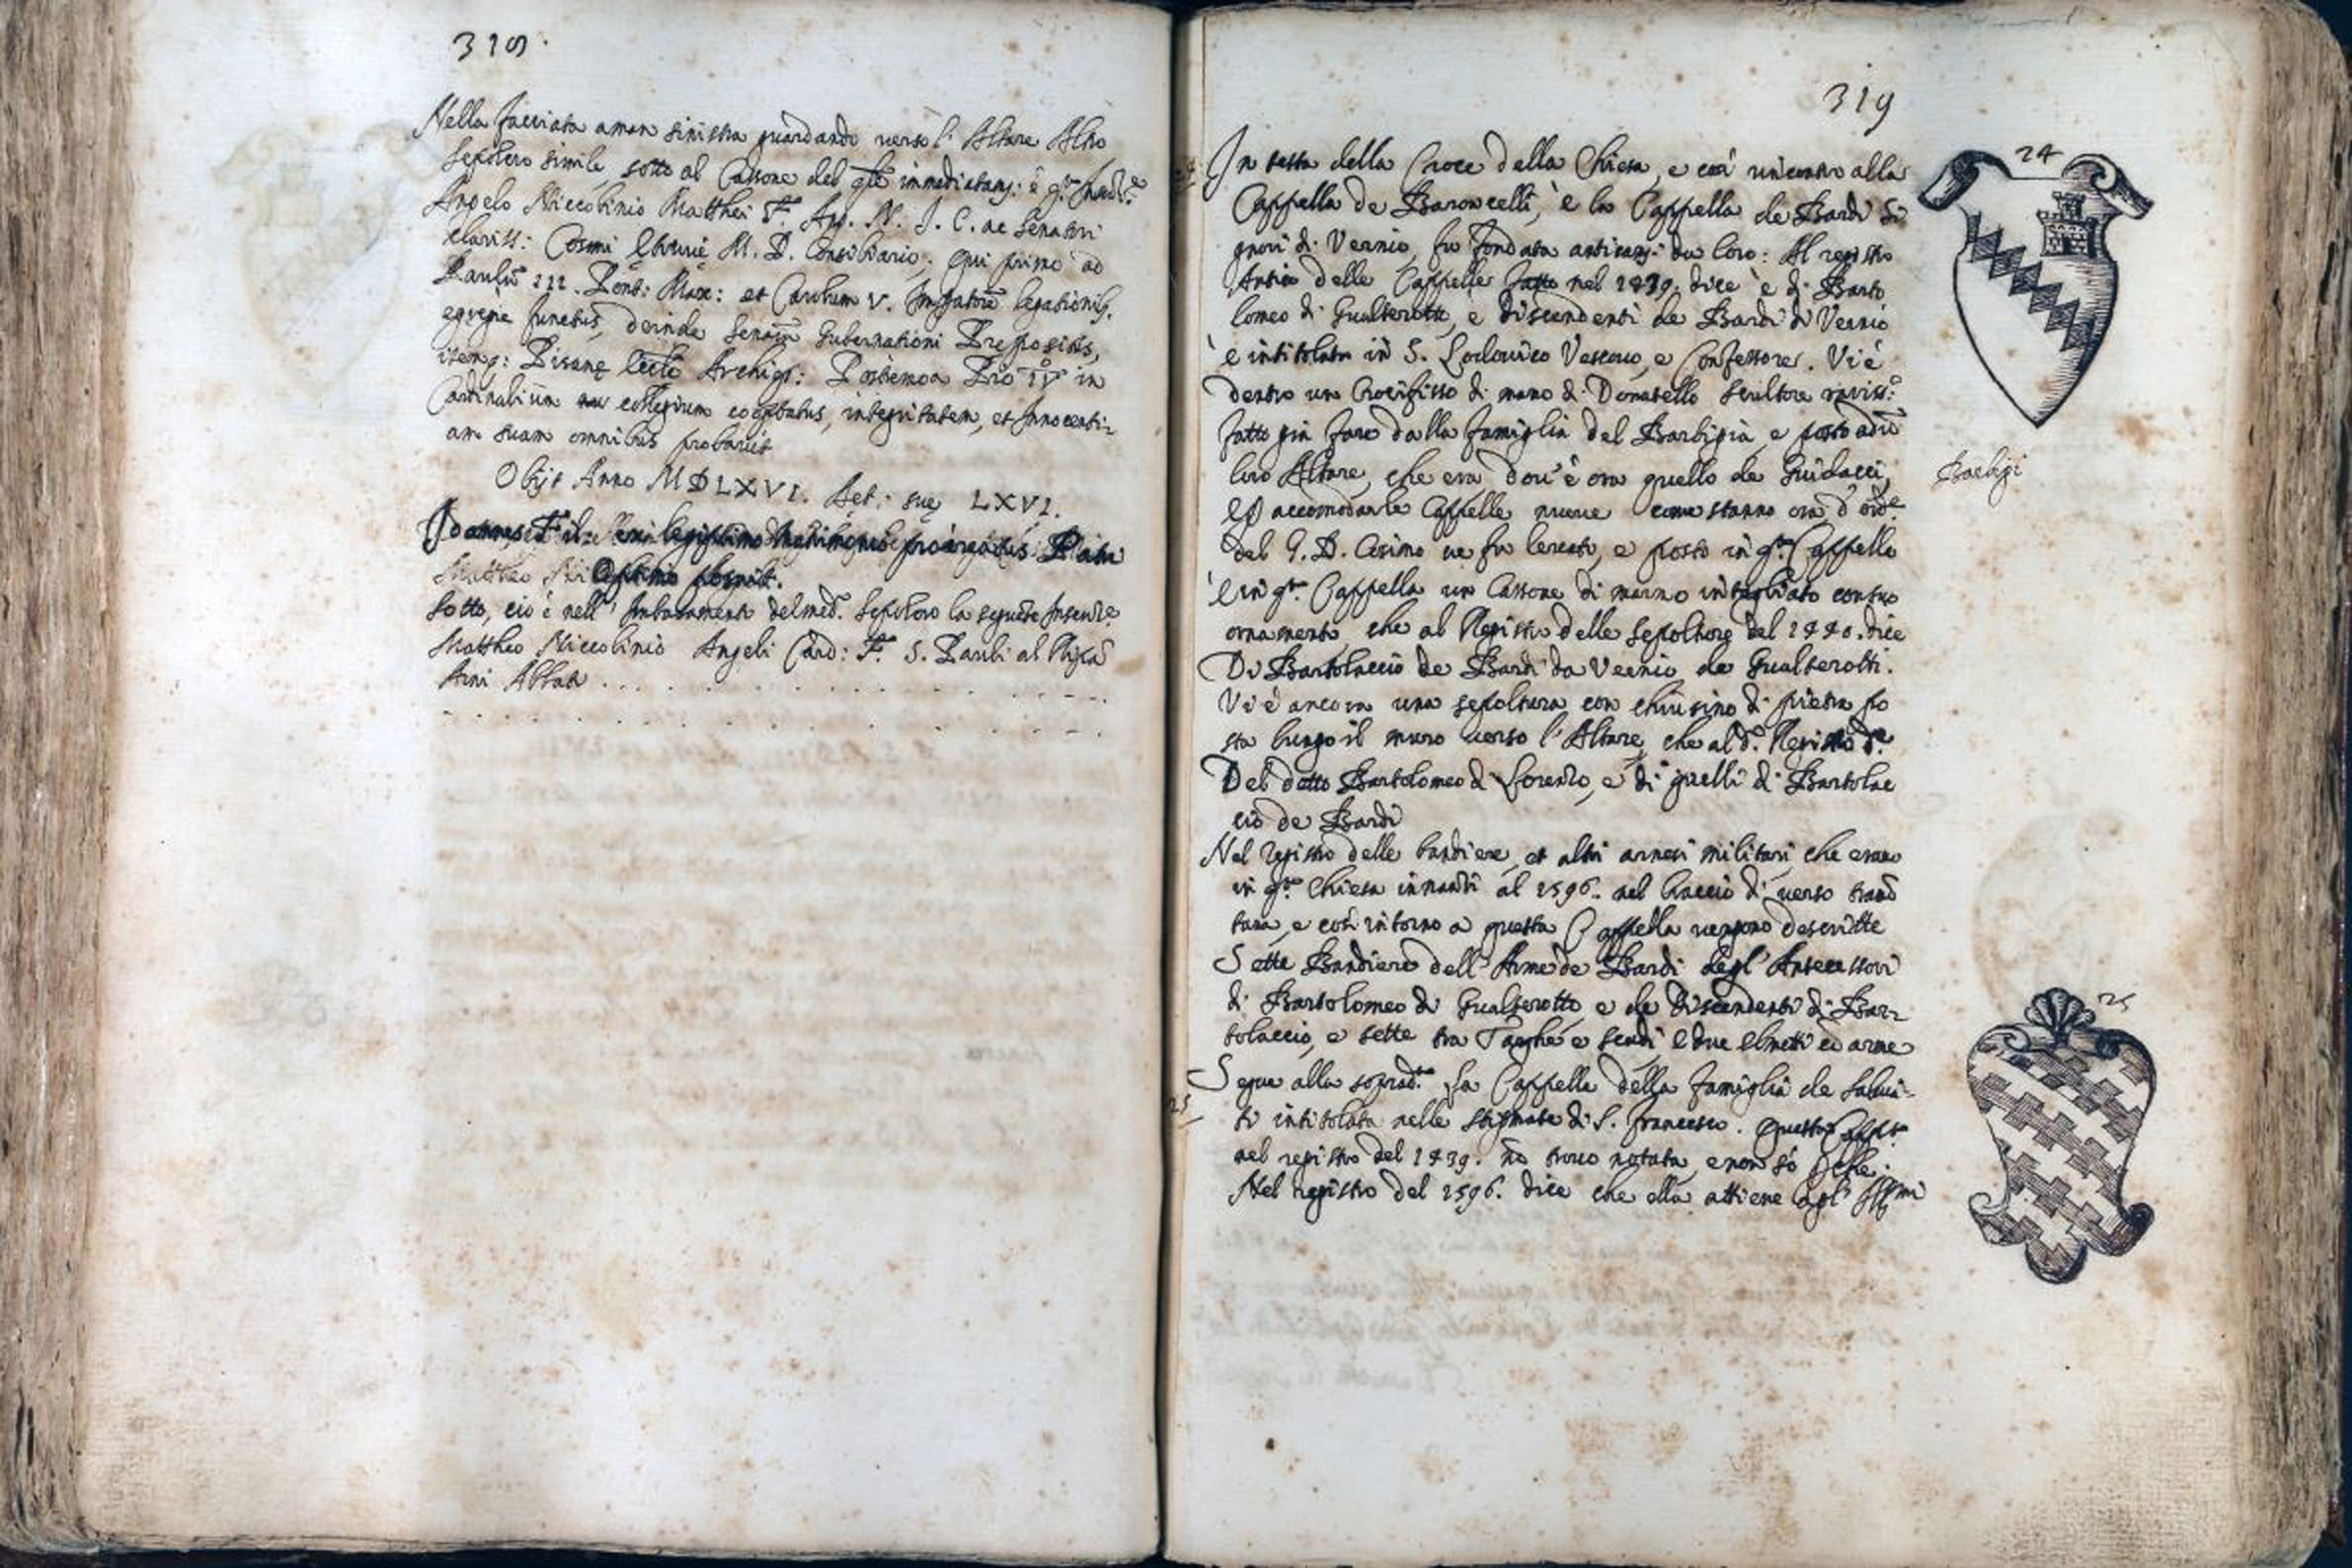 318.
Nella facciata aman sinistra guardando verso l' Altare Altro
sepolcro simile, sotto al Cassone del qle immediatamᵉ: è qᵗᵃ Inscrᵉ
Angelo Niccolinio Matthei F. Ang. N. J. C. ac Senatori
clariss: Cosmi Etrurię M. D. Consiliario, qui primo ad
Paulū III. Pont: Max: et Carolum V. Impatorē legationib.
egregie functus, deinde Senarū Gubernationi Prepositus,
itemq: Pisanę Eccle Archiep: Postremoa Pio IV in
Cardinalium collegium cooptatus, integritatem, et Innocenti-
am suam omnibus probavit
Obijt Anno MDLXVI. Aet: suę LXVI.
Joannes F. ex legiptimo Matrimonio procreatus Patri
Optimo posuit.
Sotto, cio è nell' Imbasamento del med. Sepolcro la seguēte Inscrizᵉ
Mattheo Niccolinio Angeli Card: F. S. Pauli al Ripā
Arni Abbati . . . . . . . . . .
. . . . . . . . . .
319
24
In testa della Croce della Chiesa, e così rincontro alla
Cappella de Baroncelli, è la Cappella de Bardi Si
gnori di Vernio, fu fondata anticamᵉ: da loro: Al registro
Antico delle Cappelle fatto nel 1439. dice è di Barto
lomeo di Gualterotto, e discendenti de Bardi di Vernio
è intitolata in S. Lodovico Vescovo, e Confessore. Vi è
dentro un Crocifisso di mano di Donatello scultore rariss.º
fatto già fare dalla famiglia del Barbigia, e posto adū
loro Altare, che era dov'è ora quello de Guidacci,
e p accomodar le Cappelle nuove come stanno ora d' ordᵉ
del G. D. Cosimo ne fu levato, e posto in qᵗᵃ Cappella
È in qᵗᵃ Cappella un Cassone di marmo intagliato con suo
ornamento che al Registro delle sepolture del 1440. dice
Di Bartolaccio de Bardi da Vernio de Gualterotti.
Vi è ancora una sepoltura con chiusino di pietra po
sta lungo il muro verso l'Altare, che al dº. Registro dᵉ
Del detto Bartolomeo d Lorenzo, e di quelli di Bartolac
cio de Bardi
Nel registro delle bandiere, et altri arnesi militari, che erano
in qᵗᵃ Chiesa innanzi al 1596. nel braccio di verso tramō
tana, e così intorno a questa Cappella vengono descritte
Sette Bandiere dell'Arme de Bardi degl' Antecessori
di Bartolomeo di Gualterotto, e de Discendenti di Bar-
tolaccio, e sette tra Targhe e scudi e due elmetti cō arme
Barbigi
25
25
Segue alla sopradᵗᵃ La Cappella della famiglia de Salvia-
ti intitolata nelle stigmate di S. Francesco. questa Cappᵃ
nel registro del 1439. nō trovo notata, e non sò pche.
Nel registro del 1596. dice che ella attiene agl'